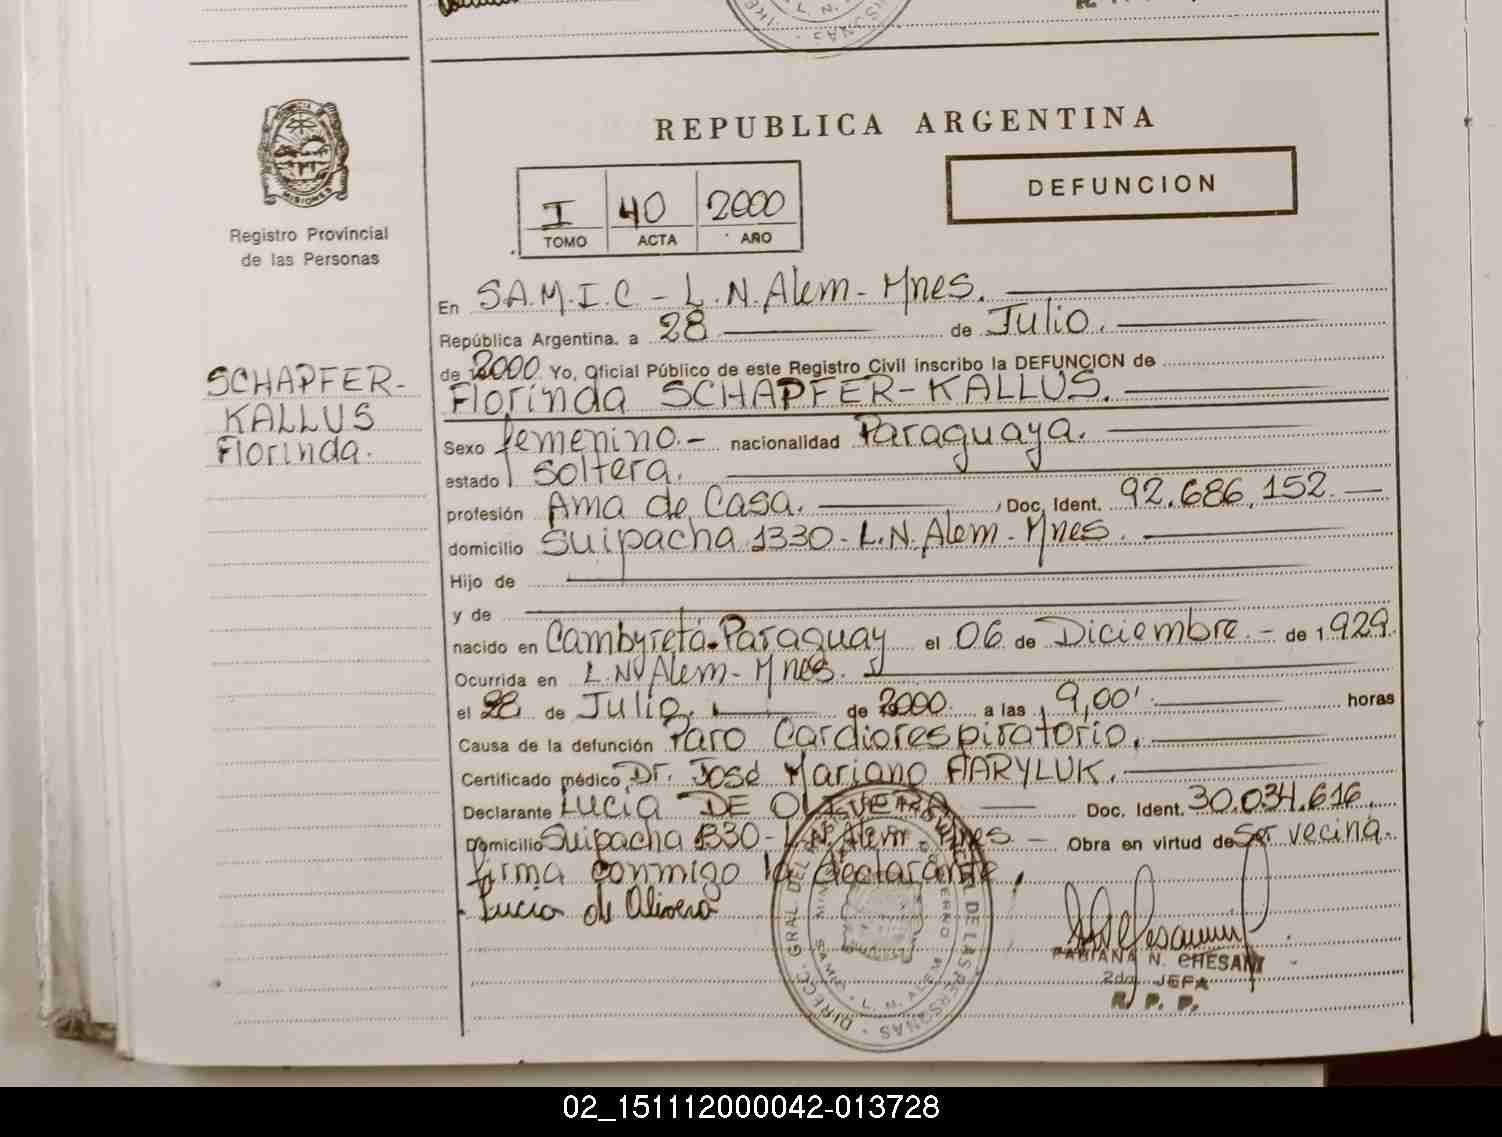 REPUBLICA ARGENTINA
I 40 2000
TOMO ACTA AÑO
DEFUNCION
MISIONES
Registro Provincial
de las Personas
SCHAPFER-
KALLUS
Florinda.
En S.A.M.I.C - L.N.Alem - Mnes.
República Argentina, a 28 de Julio.
de 2000 Yo, Oficial Público de este Registro Civil inscribo la DEFUNCION de
Florinda SCHAPFER-KALLUS.
Sexo femenino.- nacionalidad Paraguaya.
estado soltera.
profesión Ama de Casa. Doc. Ident. 92.686.152.
domicilio Suipacha 1330 - L.N.Alem - Mnes.
Hijo de
y de
nacido en Cambyretá-Paraguay el 06 de Diciembre.- de 1.929.
Ocurrida en L.N.Alem - Mnes.
el 28 de Julio. de 2000 a las 9,00' horas
Causa de la defunción Paro Cardiorespiratorio.
Certificado médico Dr. José Mariano HARYLUK.
Declarante Lucia DE OLIVERA Doc. Ident. 30.034.616.
Domicilio Suipacha 1330 - L.N.Alem - Mnes - Obra en virtud de Ser vecina.
firma conmigo la declarante.
Lucia de Olivera
DIRECC. GRAL. DEL DE LAS PERSONAS
SAMIC - L. N. ALEM
FABIANA N. CHESANI
2da JEFA
R. P. P.
02_151112000042-013728